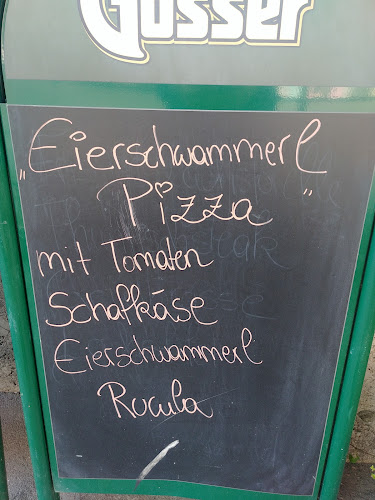 Gösser
„Eierschwammerl
Pizza"
mit Tomaten
Schafkäse
Eierschwammerl
Rucula